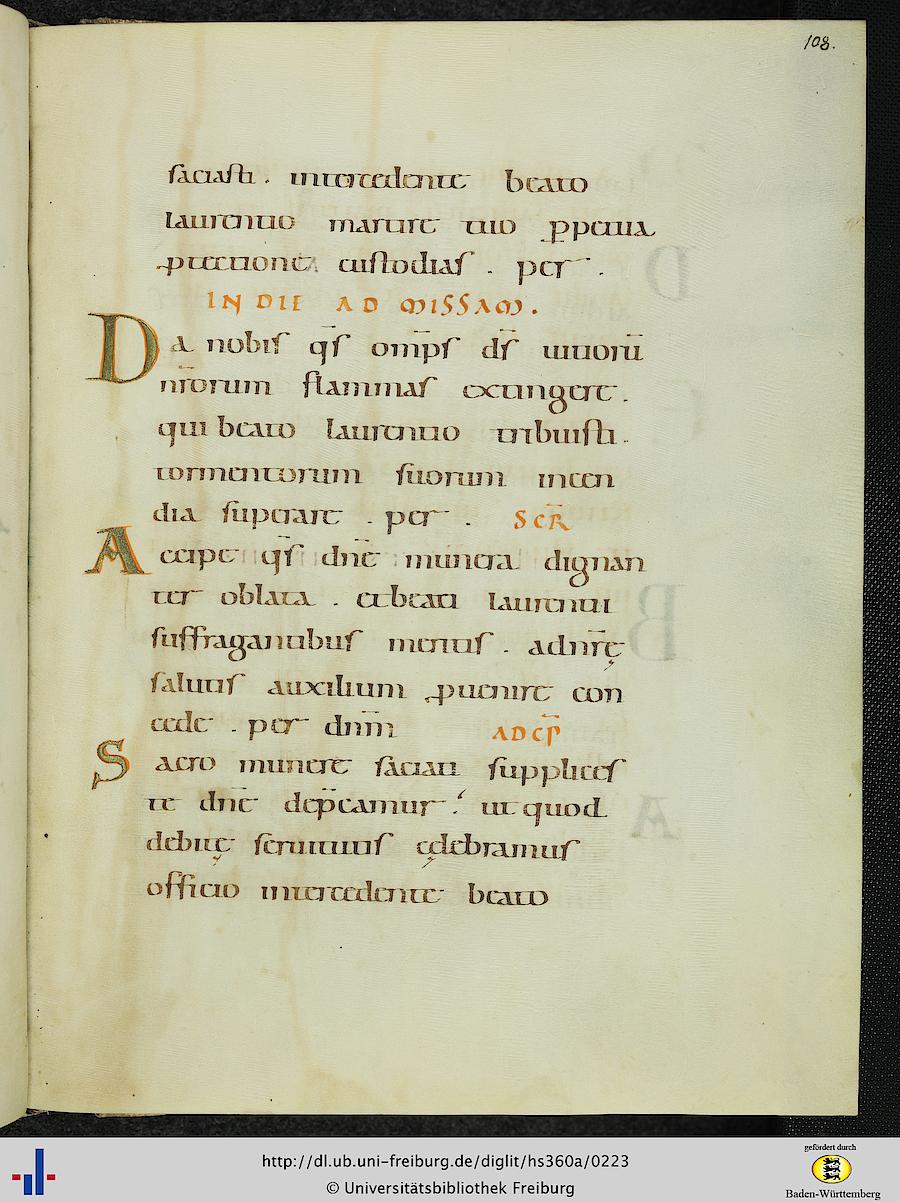 108.
saciasti. intercedente beato
laurentio martire tuo ꝑpetua
ꝓtectione custodias. per.
IN DIE AD MISSAM.
Da nobis qs̄ omp̄s ds̄ uitiorū
nr̄orum flammas extingere.
qui beato laurentio tribuisti.
tormentorum suorum incen
dia superare. per. SCR̄
Accipe qs̄ dn̄e munera dignan
ter oblata. et beati laurentii
suffragantibus meritis. ad nr̄ę
salutis auxilium ꝓuenire con
cede. per dnm̄ AD CP̄
Sacro munere saciati supplices
te dn̄e dep̄camur. ut quod
debitę seruitutis cęlebramus
officio intercedente beato
http://dl.ub.uni-freiburg.de/diglit/hs360a/0223
© Universitätsbibliothek Freiburg
gefördert durch
Baden-Württemberg